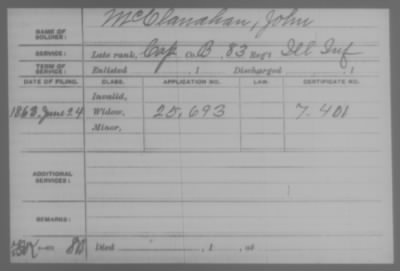 McClanahan, John
NAME OF SOLDIER:
SERVICE: Late rank, Cap Co. B, 83 Reg't Ill Inf
TERM OF SERVICE: Enlisted , 1 Discharged , 1
DATE OF FILING. CLASS. APPLICATION NO. LAW. CERTIFICATE NO.
Invalid,
1863, June 24 Widow, 25,693 7.401
Minor,
ADDITIONAL SERVICES:
REMARKS:
Died , 1 , at